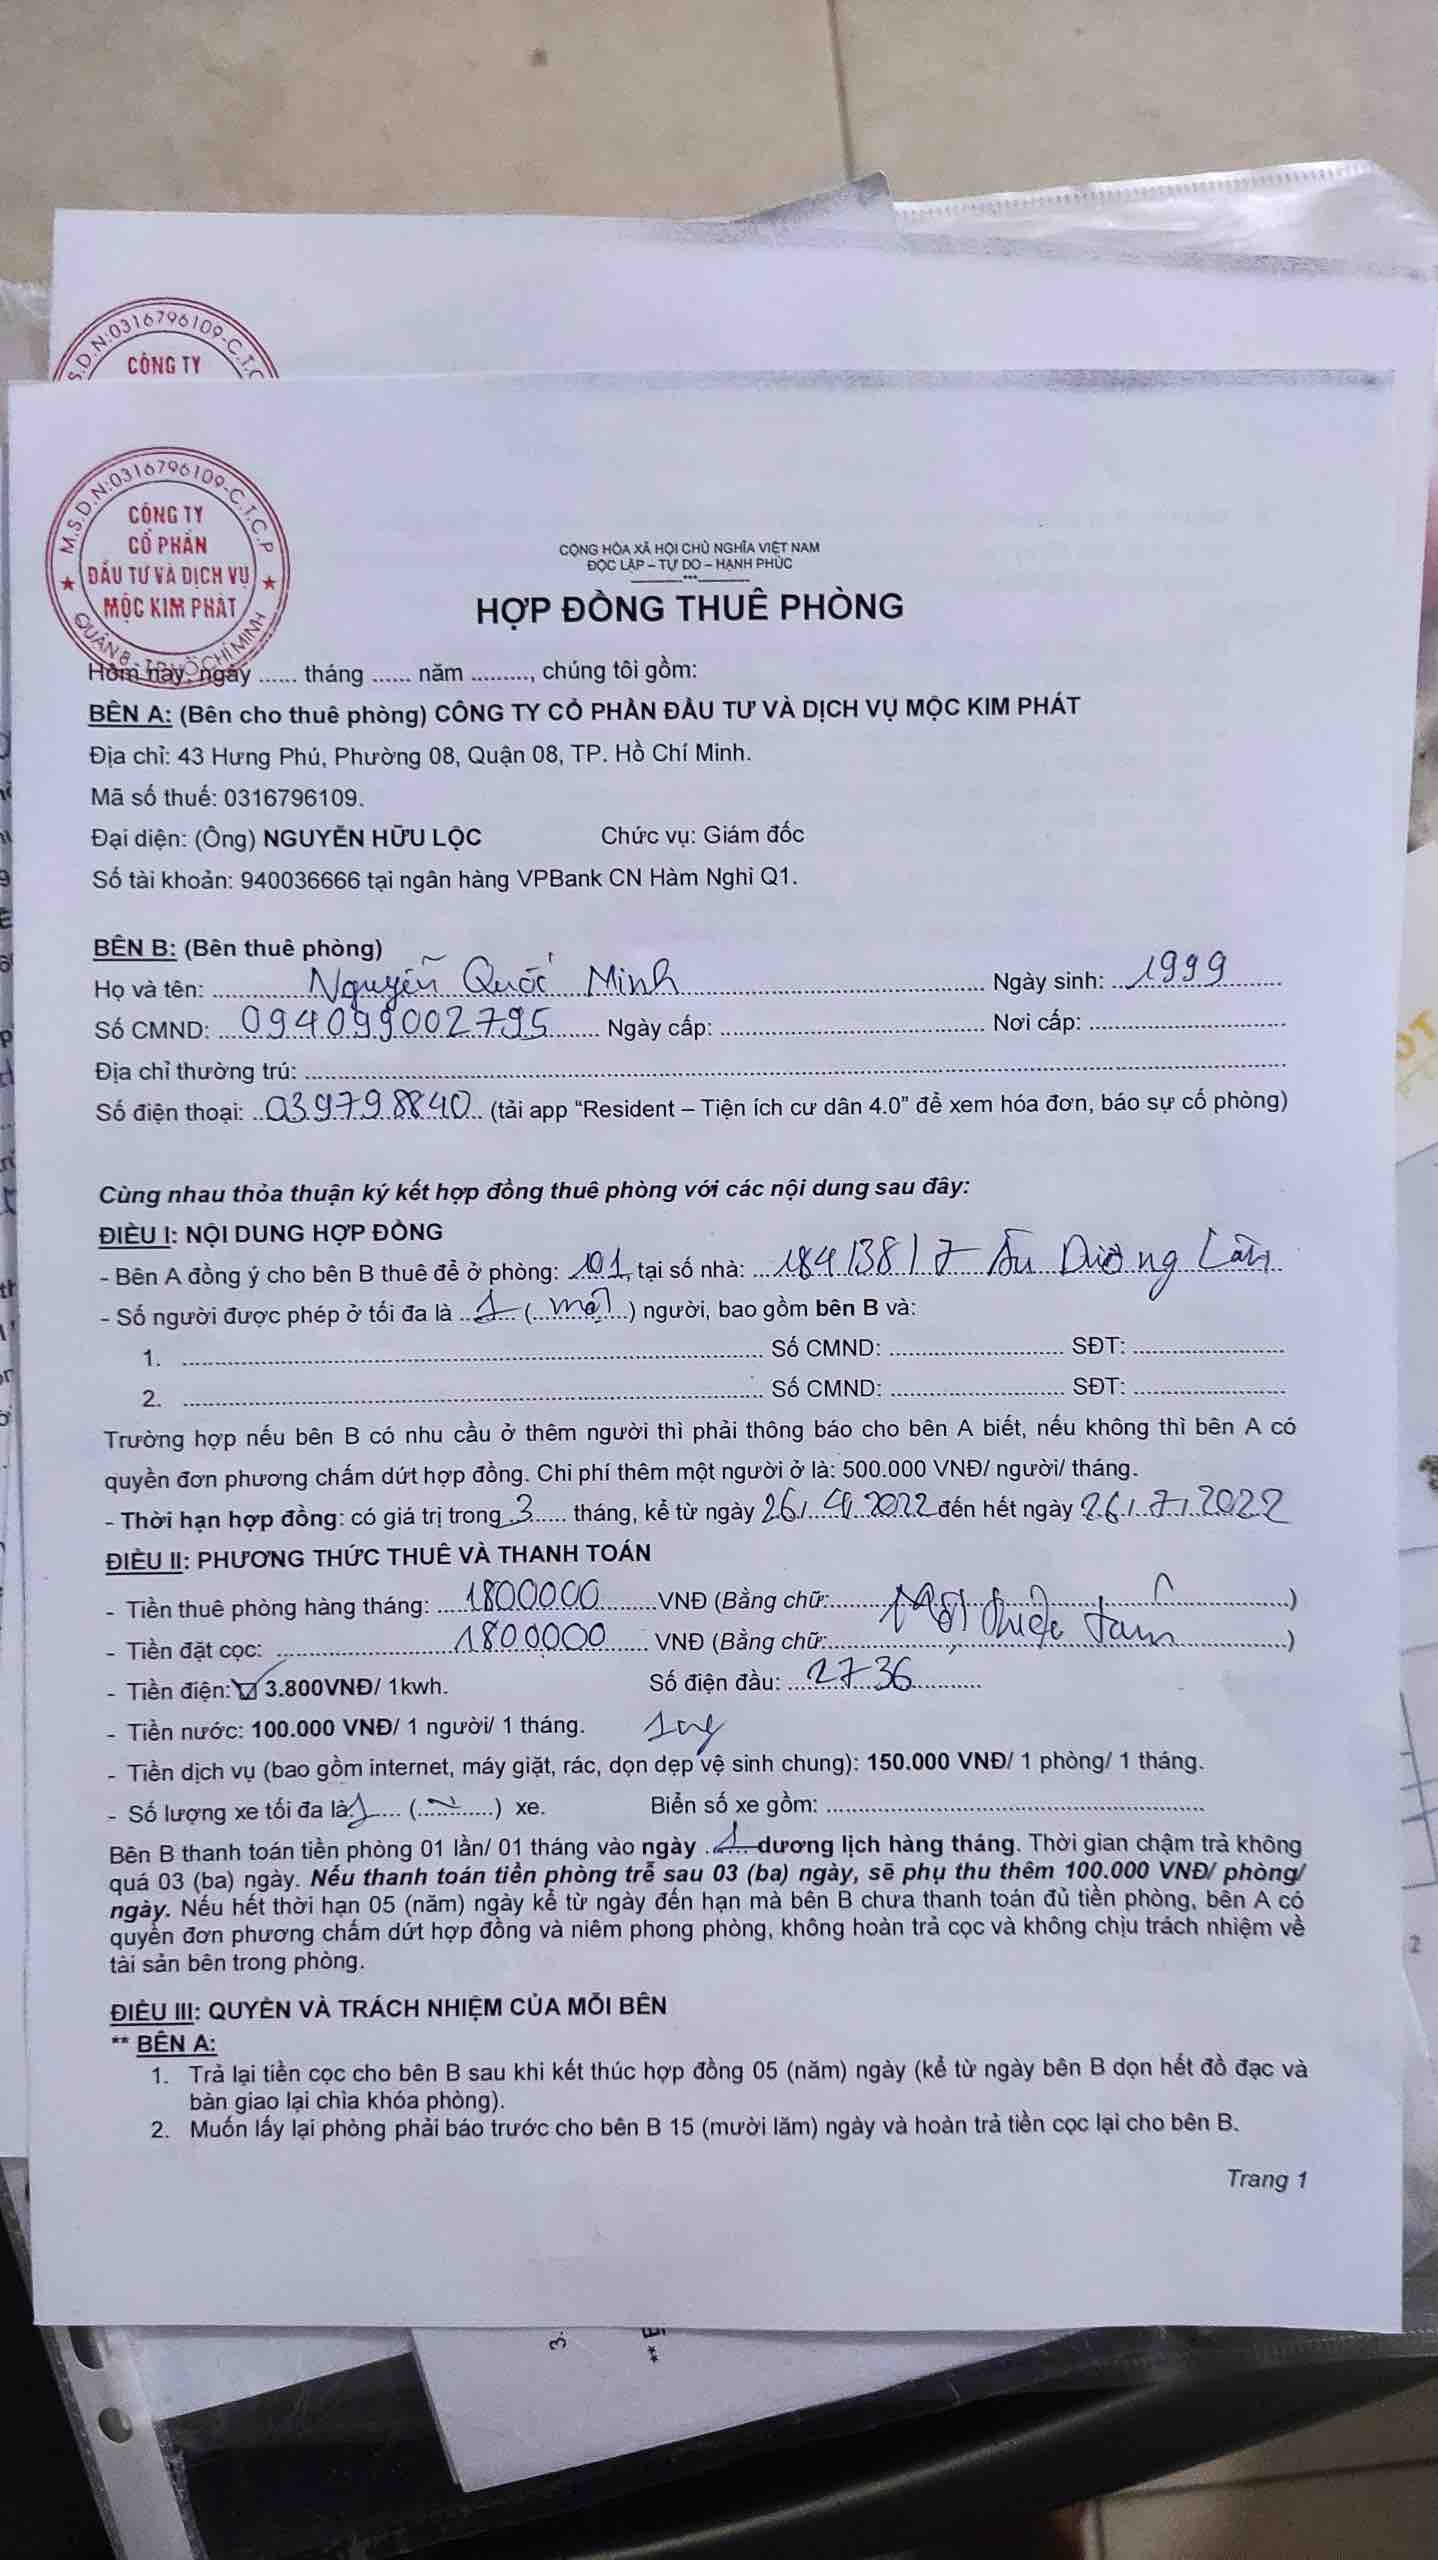 M.S.D.N:0316796109-C.T.C
CÔNG TY
M.S.D.N:0316796109-C.T.C.P
CÔNG TY
CỔ PHẦN
ĐẦU TƯ VÀ DỊCH VỤ
MỘC KIM PHÁT
QUẬN 8 - TP HỒ CHÍ MINH
CỘNG HÒA XÃ HỘI CHỦ NGHĨA VIỆT NAM
ĐỘC LẬP – TỰ DO – HẠNH PHÚC
***
HỢP ĐỒNG THUÊ PHÒNG
Hôm nay, ngày ...... tháng ...... năm ........., chúng tôi gồm:
BÊN A: (Bên cho thuê phòng) CÔNG TY CỔ PHẦN ĐẦU TƯ VÀ DỊCH VỤ MỘC KIM PHÁT
Địa chỉ: 43 Hưng Phú, Phường 08, Quận 08, TP. Hồ Chí Minh.
Mã số thuế: 0316796109.
Đại diện: (Ông) NGUYỄN HỮU LỘC Chức vụ: Giám đốc
Số tài khoản: 940036666 tại ngân hàng VPBank CN Hàm Nghi Q1.
BÊN B: (Bên thuê phòng)
Họ và tên: Nguyễn Quốc Minh Ngày sinh: 1999
Số CMND: 094099002795 Ngày cấp: ........ Nơi cấp: ........
Địa chỉ thường trú: ........
Số điện thoại: 039798840 (tải app “Resident – Tiện ích cư dân 4.0” để xem hóa đơn, báo sự cố phòng)
Cùng nhau thỏa thuận ký kết hợp đồng thuê phòng với các nội dung sau đây:
ĐIỀU I: NỘI DUNG HỢP ĐỒNG
- Bên A đồng ý cho bên B thuê để ở phòng: 101, tại số nhà: 184/38/7 Âu Dương Lân
- Số người được phép ở tối đa là 1 (một) người, bao gồm bên B và:
1. ........ Số CMND: ........ SĐT: ........
2. ........ Số CMND: ........ SĐT: ........
Trường hợp nếu bên B có nhu cầu ở thêm người thì phải thông báo cho bên A biết, nếu không thì bên A có
quyền đơn phương chấm dứt hợp đồng. Chi phí thêm một người ở là: 500.000 VNĐ/ người/ tháng.
- Thời hạn hợp đồng: có giá trị trong 3 tháng, kể từ ngày 26/4/2022 đến hết ngày 26/7/2022
ĐIỀU II: PHƯƠNG THỨC THUÊ VÀ THANH TOÁN
- Tiền thuê phòng hàng tháng: 1800000 VNĐ (Bằng chữ: Một triệu tám)
- Tiền đặt cọc: 1800000 VNĐ (Bằng chữ: ........)
- Tiền điện: ☑ 3.800VNĐ/ 1kwh. Số điện đầu: 2736
- Tiền nước: 100.000 VNĐ/ 1 người/ 1 tháng. 1 ng
- Tiền dịch vụ (bao gồm internet, máy giặt, rác, dọn dẹp vệ sinh chung): 150.000 VNĐ/ 1 phòng/ 1 tháng.
- Số lượng xe tối đa là 1 (........) xe. Biển số xe gồm: ........
Bên B thanh toán tiền phòng 01 lần/ 01 tháng vào ngày 1 dương lịch hàng tháng. Thời gian chậm trả không
quá 03 (ba) ngày. Nếu thanh toán tiền phòng trễ sau 03 (ba) ngày, sẽ phụ thu thêm 100.000 VNĐ/ phòng/
ngày. Nếu hết thời hạn 05 (năm) ngày kể từ ngày đến hạn mà bên B chưa thanh toán đủ tiền phòng, bên A có
quyền đơn phương chấm dứt hợp đồng và niêm phong phòng, không hoàn trả cọc và không chịu trách nhiệm về
tài sản bên trong phòng.
ĐIỀU III: QUYỀN VÀ TRÁCH NHIỆM CỦA MỖI BÊN
** BÊN A:
1. Trả lại tiền cọc cho bên B sau khi kết thúc hợp đồng 05 (năm) ngày (kể từ ngày bên B dọn hết đồ đạc và
bàn giao lại chìa khóa phòng).
2. Muốn lấy lại phòng phải báo trước cho bên B 15 (mười lăm) ngày và hoàn trả tiền cọc lại cho bên B.
Trang 1